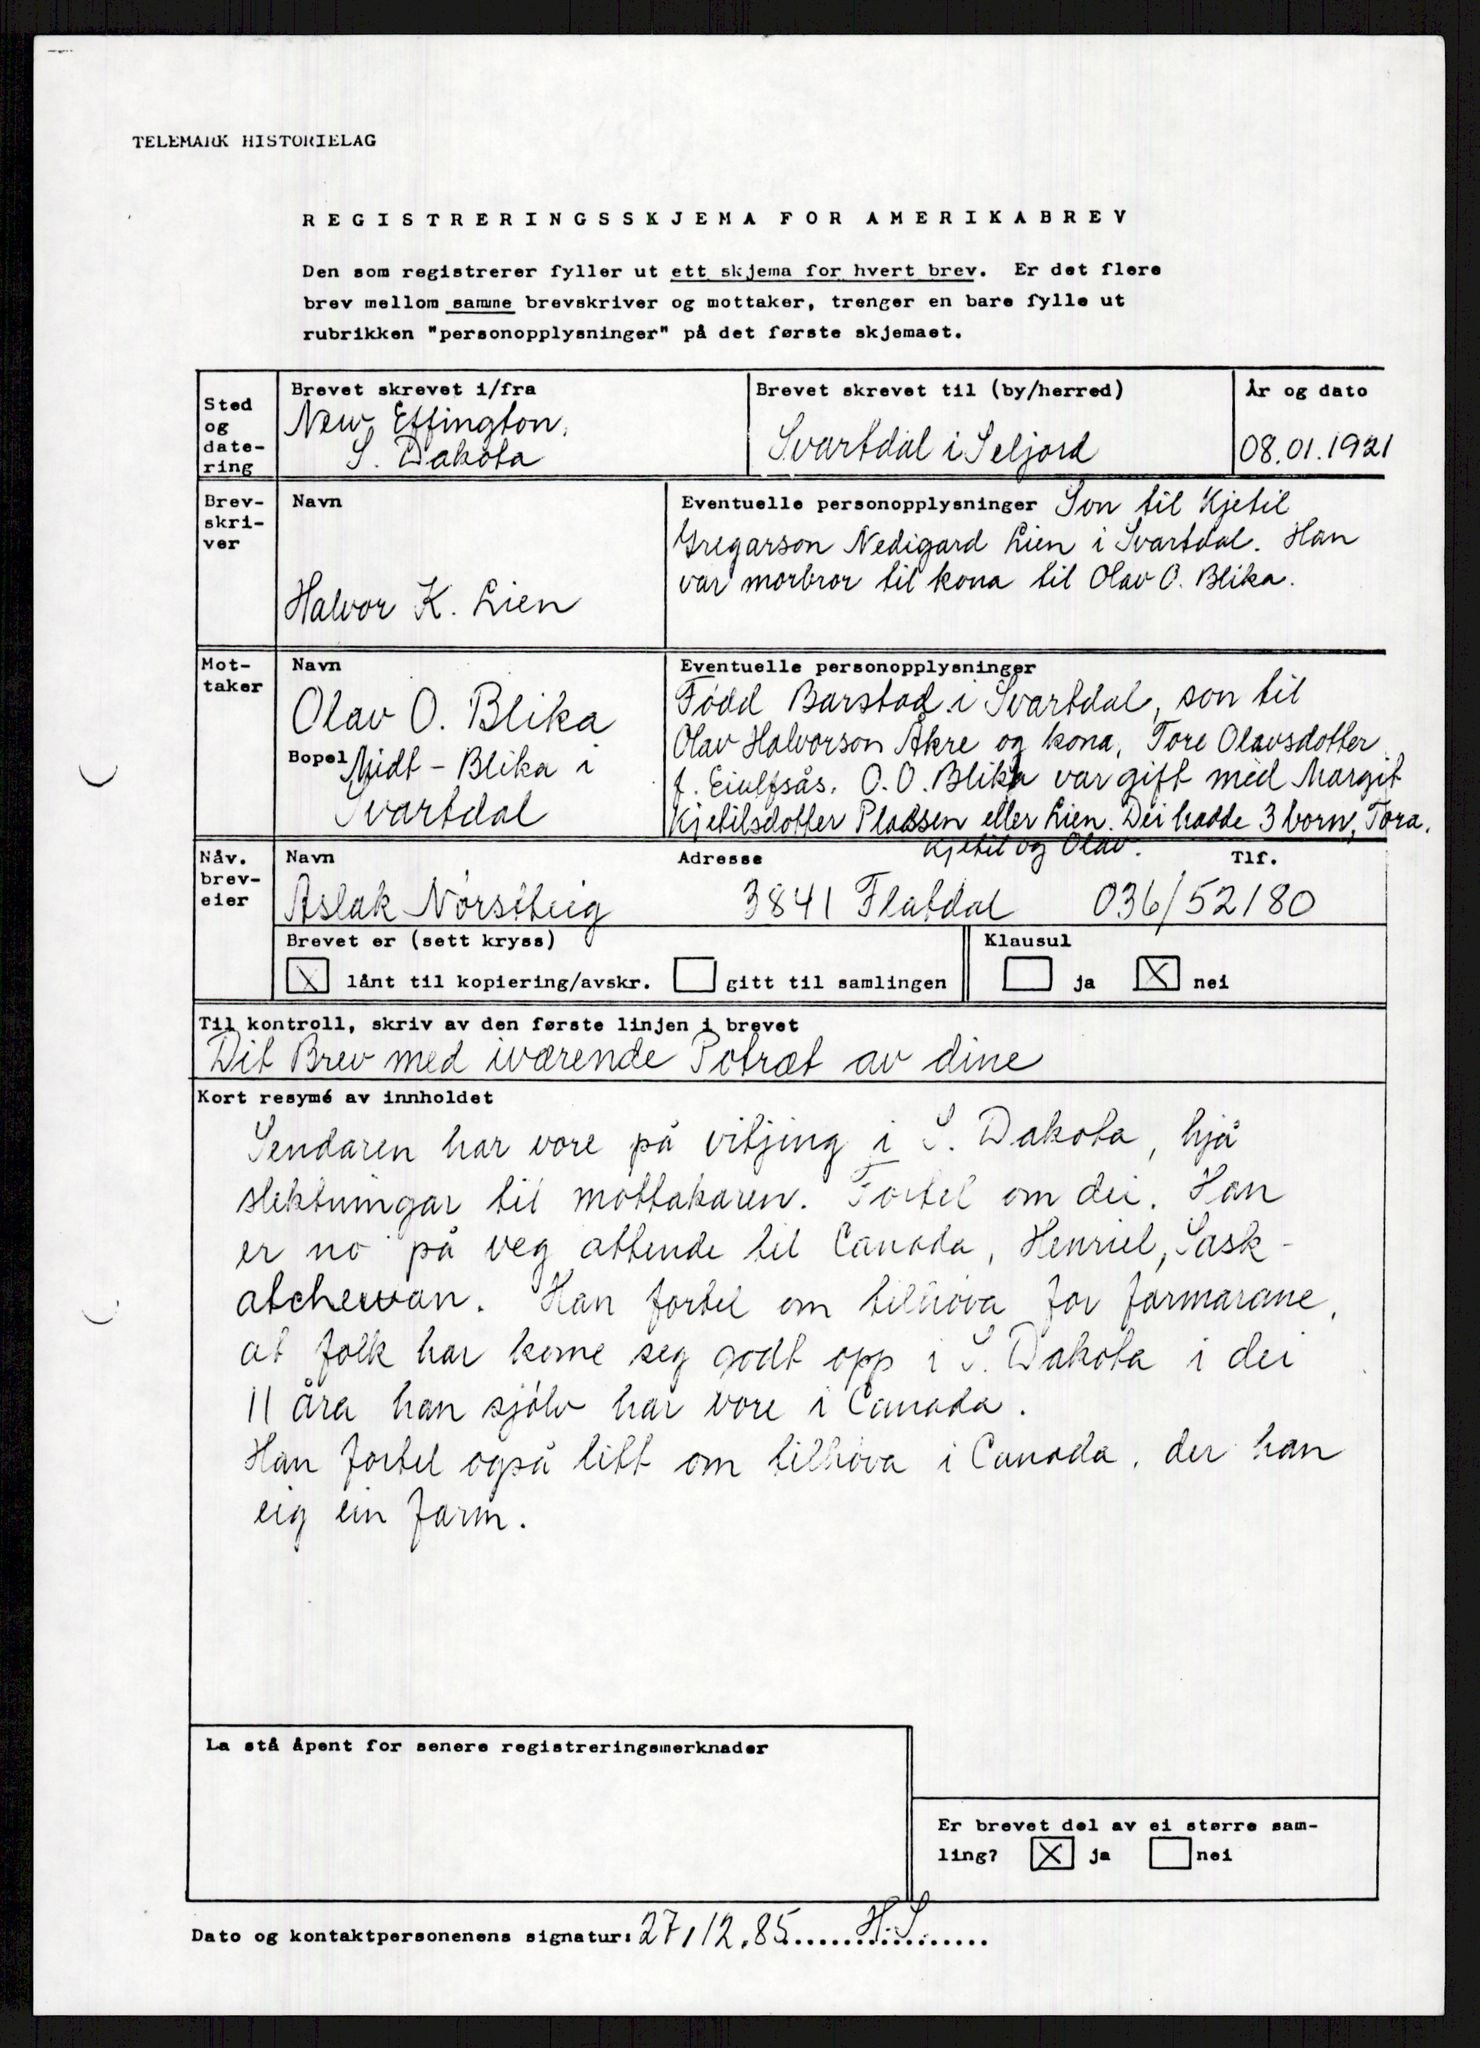 TELEMARK HISTORIELAG
REGISTRERINGSSKJEMA FOR AMERIKABREV
Den som registrerer fyller ut ett skjema for hvert brev. Er det flere
brev mellom samme brevskriver og mottaker, trenger en bare fylle ut
rubrikken "personopplysninger" på det første skjemaet.
Sted
og
date-
ring
Brevet skrevet i/fra
New Effington,
S. Dakota
Brevet skrevet til (by/herred)
Svartdal i Seljord
År og dato
08.01.1921
Brev-
skri-
ver
Navn
Halvor K. Lien
Eventuelle personopplysninger Son til Kjetil
Gregarson Nedigard Lien i Svartdal. Han
var morbror til kona til Olav O. Blika.
Mot-
taker
Navn
Olav O. Blika
Bopel Midt-Blika i
Svartdal
Eventuelle personopplysninger
Fødd Barstad i Svartdal, son til
Olav Halvorson Åkre og kona, Tore Olavsdotter
f. Eiulfsås. O.O. Blika var gift med Margit
Kjetilsdotter Plassen eller Lien. Dei hadde 3 born, Tora,
Kjetil og Olav.
Nåv.
brev-
eier
Navn
Aslak Nørsteig
Adresse
3841 Flatdal
Tlf.
036/52180
Brevet er (sett kryss)
X lånt til kopiering/avskr.
gitt til samlingen
Klausul
ja
X nei
Til kontroll, skriv av den første linjen i brevet
Dit Brev med iværende Potræt av dine
Kort resymé av innholdet
Sendaren har vore på vitjing i S. Dakota, hjå
slektningar til mottakaren. Fortel om dei. Han
er no på veg attende til Canada, Henriel, Sask-
atchewan. Han fortel om tilhøva for farmarane,
at folk har kome seg godt opp i S. Dakota i dei
11 åra han sjølv har vore i Canada.
Han fortel også litt om tilhøva i Canada, der han
eig ein farm.
La stå åpent for senere registreringsmerknader
Er brevet del av ei større sam-
ling? X ja nei
Dato og kontaktpersonenens signatur: 27.12.85......H.S.......